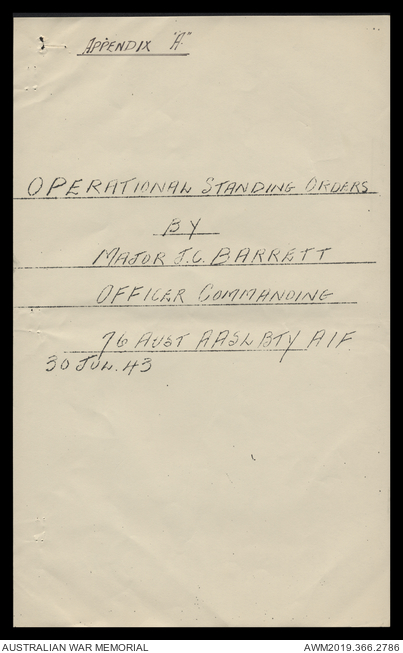 APPENDIX "A"
OPERATIONAL STANDING ORDERS
BY
MAJOR J.C. BARRETT
OFFICER COMMANDING
76 AUST AASL BTY AIF
30 JUL. 43
AUSTRALIAN WAR MEMORIAL
AWM2019.366.2786